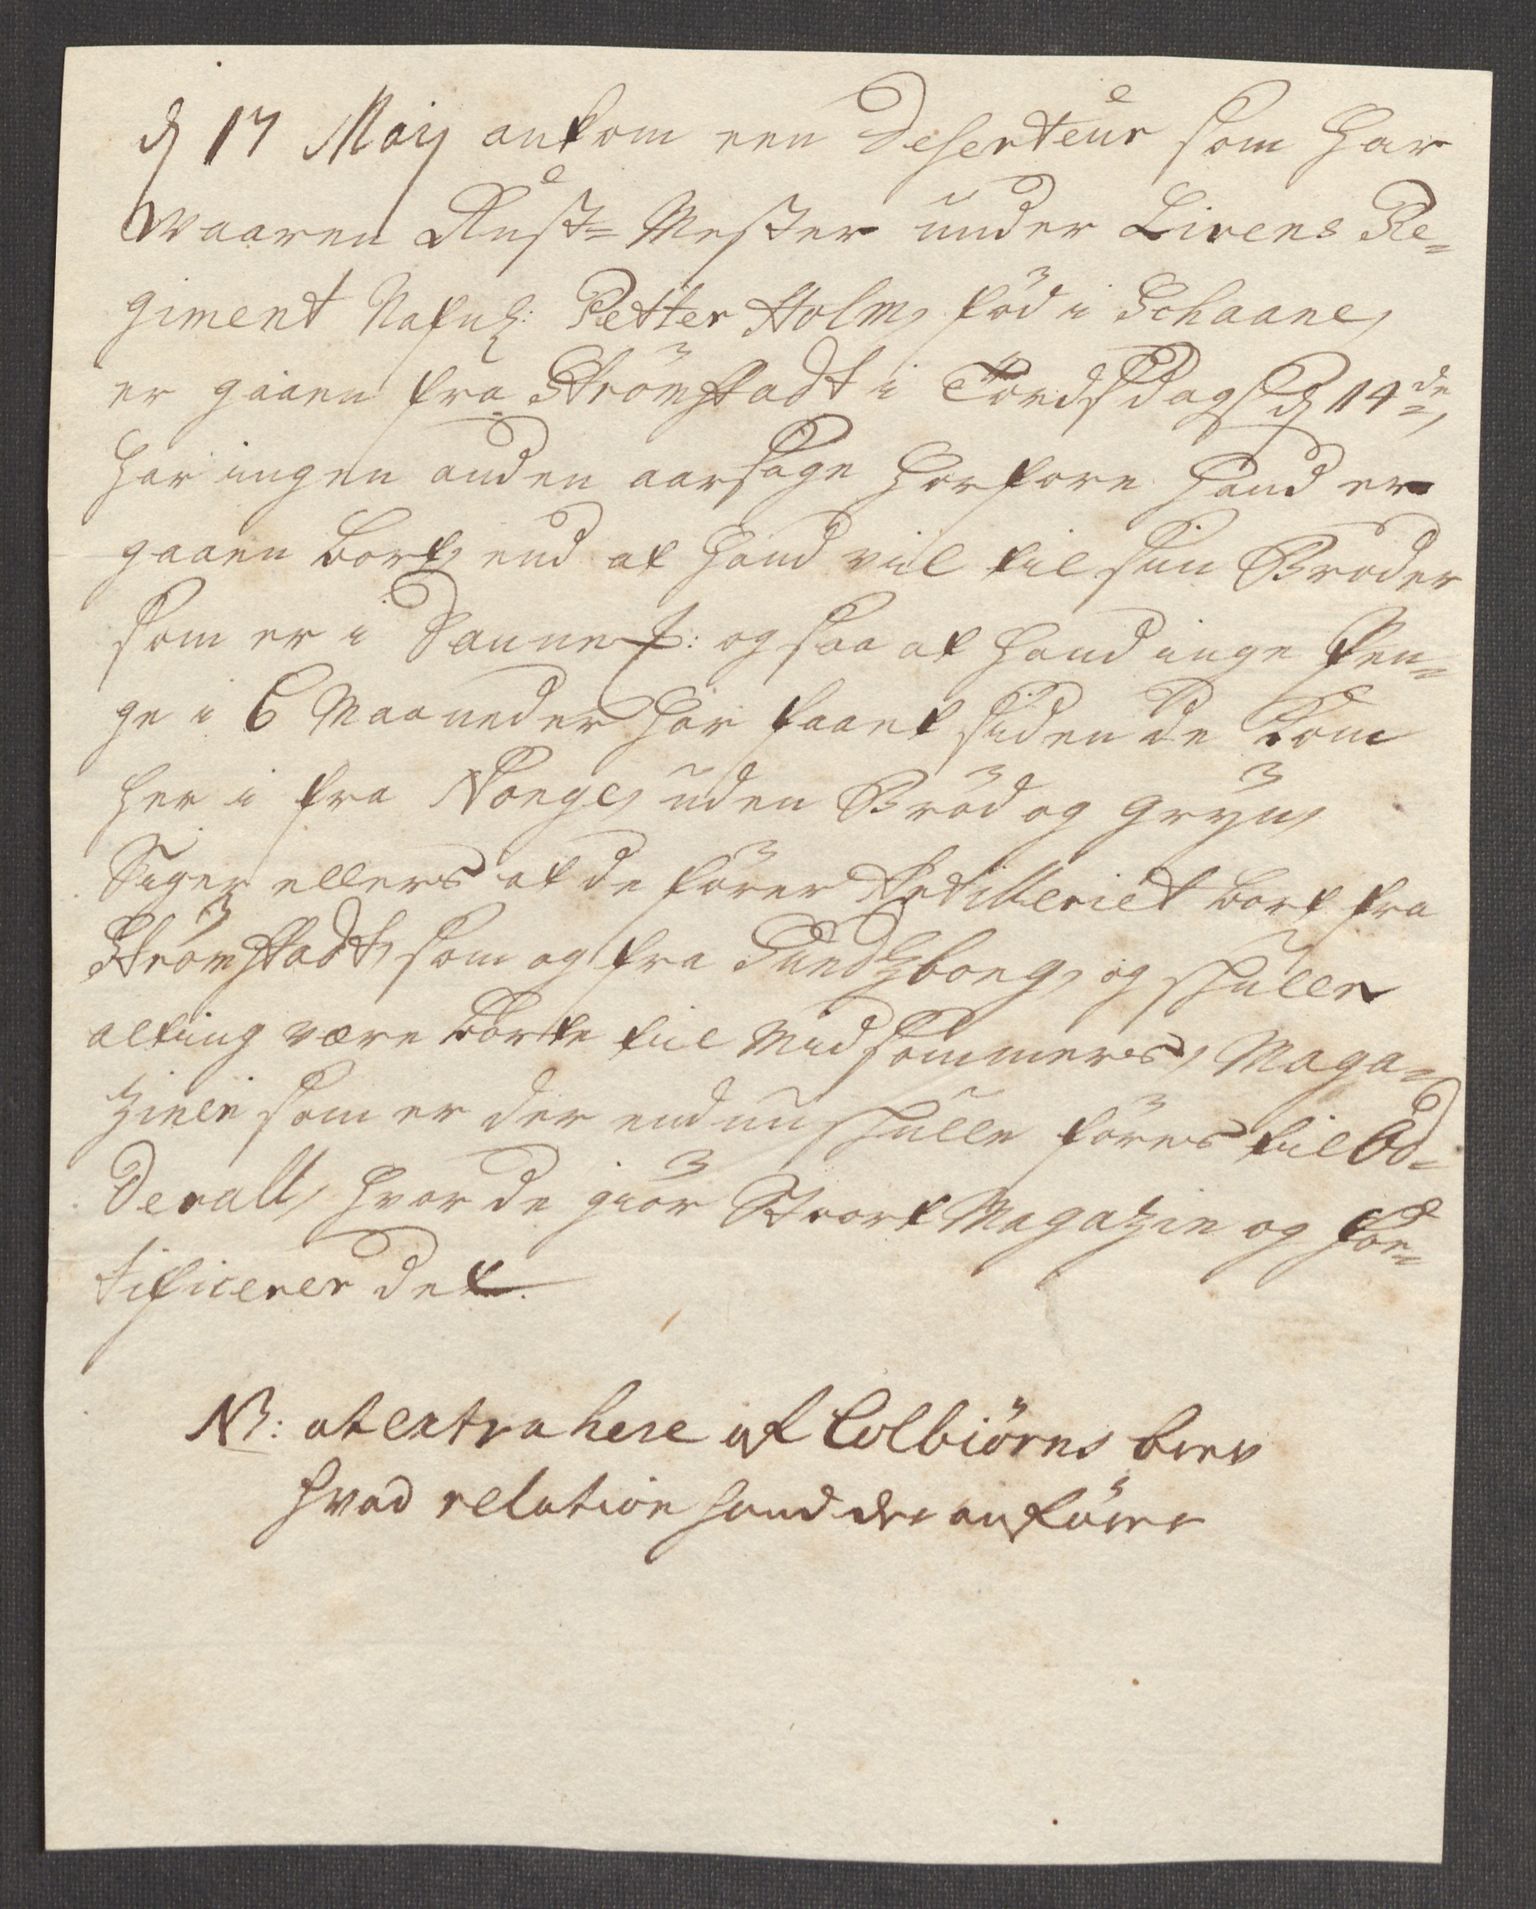 d 17 Maij ankom een Deserteur som har
waaren Rust= Mester under Livens Re-
giment Nafnl: Petter Holm, föd i Schaane,
er gaaen fra Strömstadt i Tordsdags d 14de,
har ingen anden aarsage hvorfore hand er
gaaen bort, end at hand vil til sin Broder
som er i Dannem: og saa at hand inge Pen-
ge i 6 Maaneder har faaet siden de kom
her i fra Norge, uden Bröd og Gryn,
Siger ellers at de förer Artilleriet bort fra
Strömstadt, som og fra Sundsborg, og skulle
alting være borte til Midsommers, Maga-
zinen som er der endnu skulle föres til Od-
devall, hvor de giör Stort Magazin og For-
tificerer det.
NB: at extrahere af Colbiörns brev
hvad relation hand der anförer